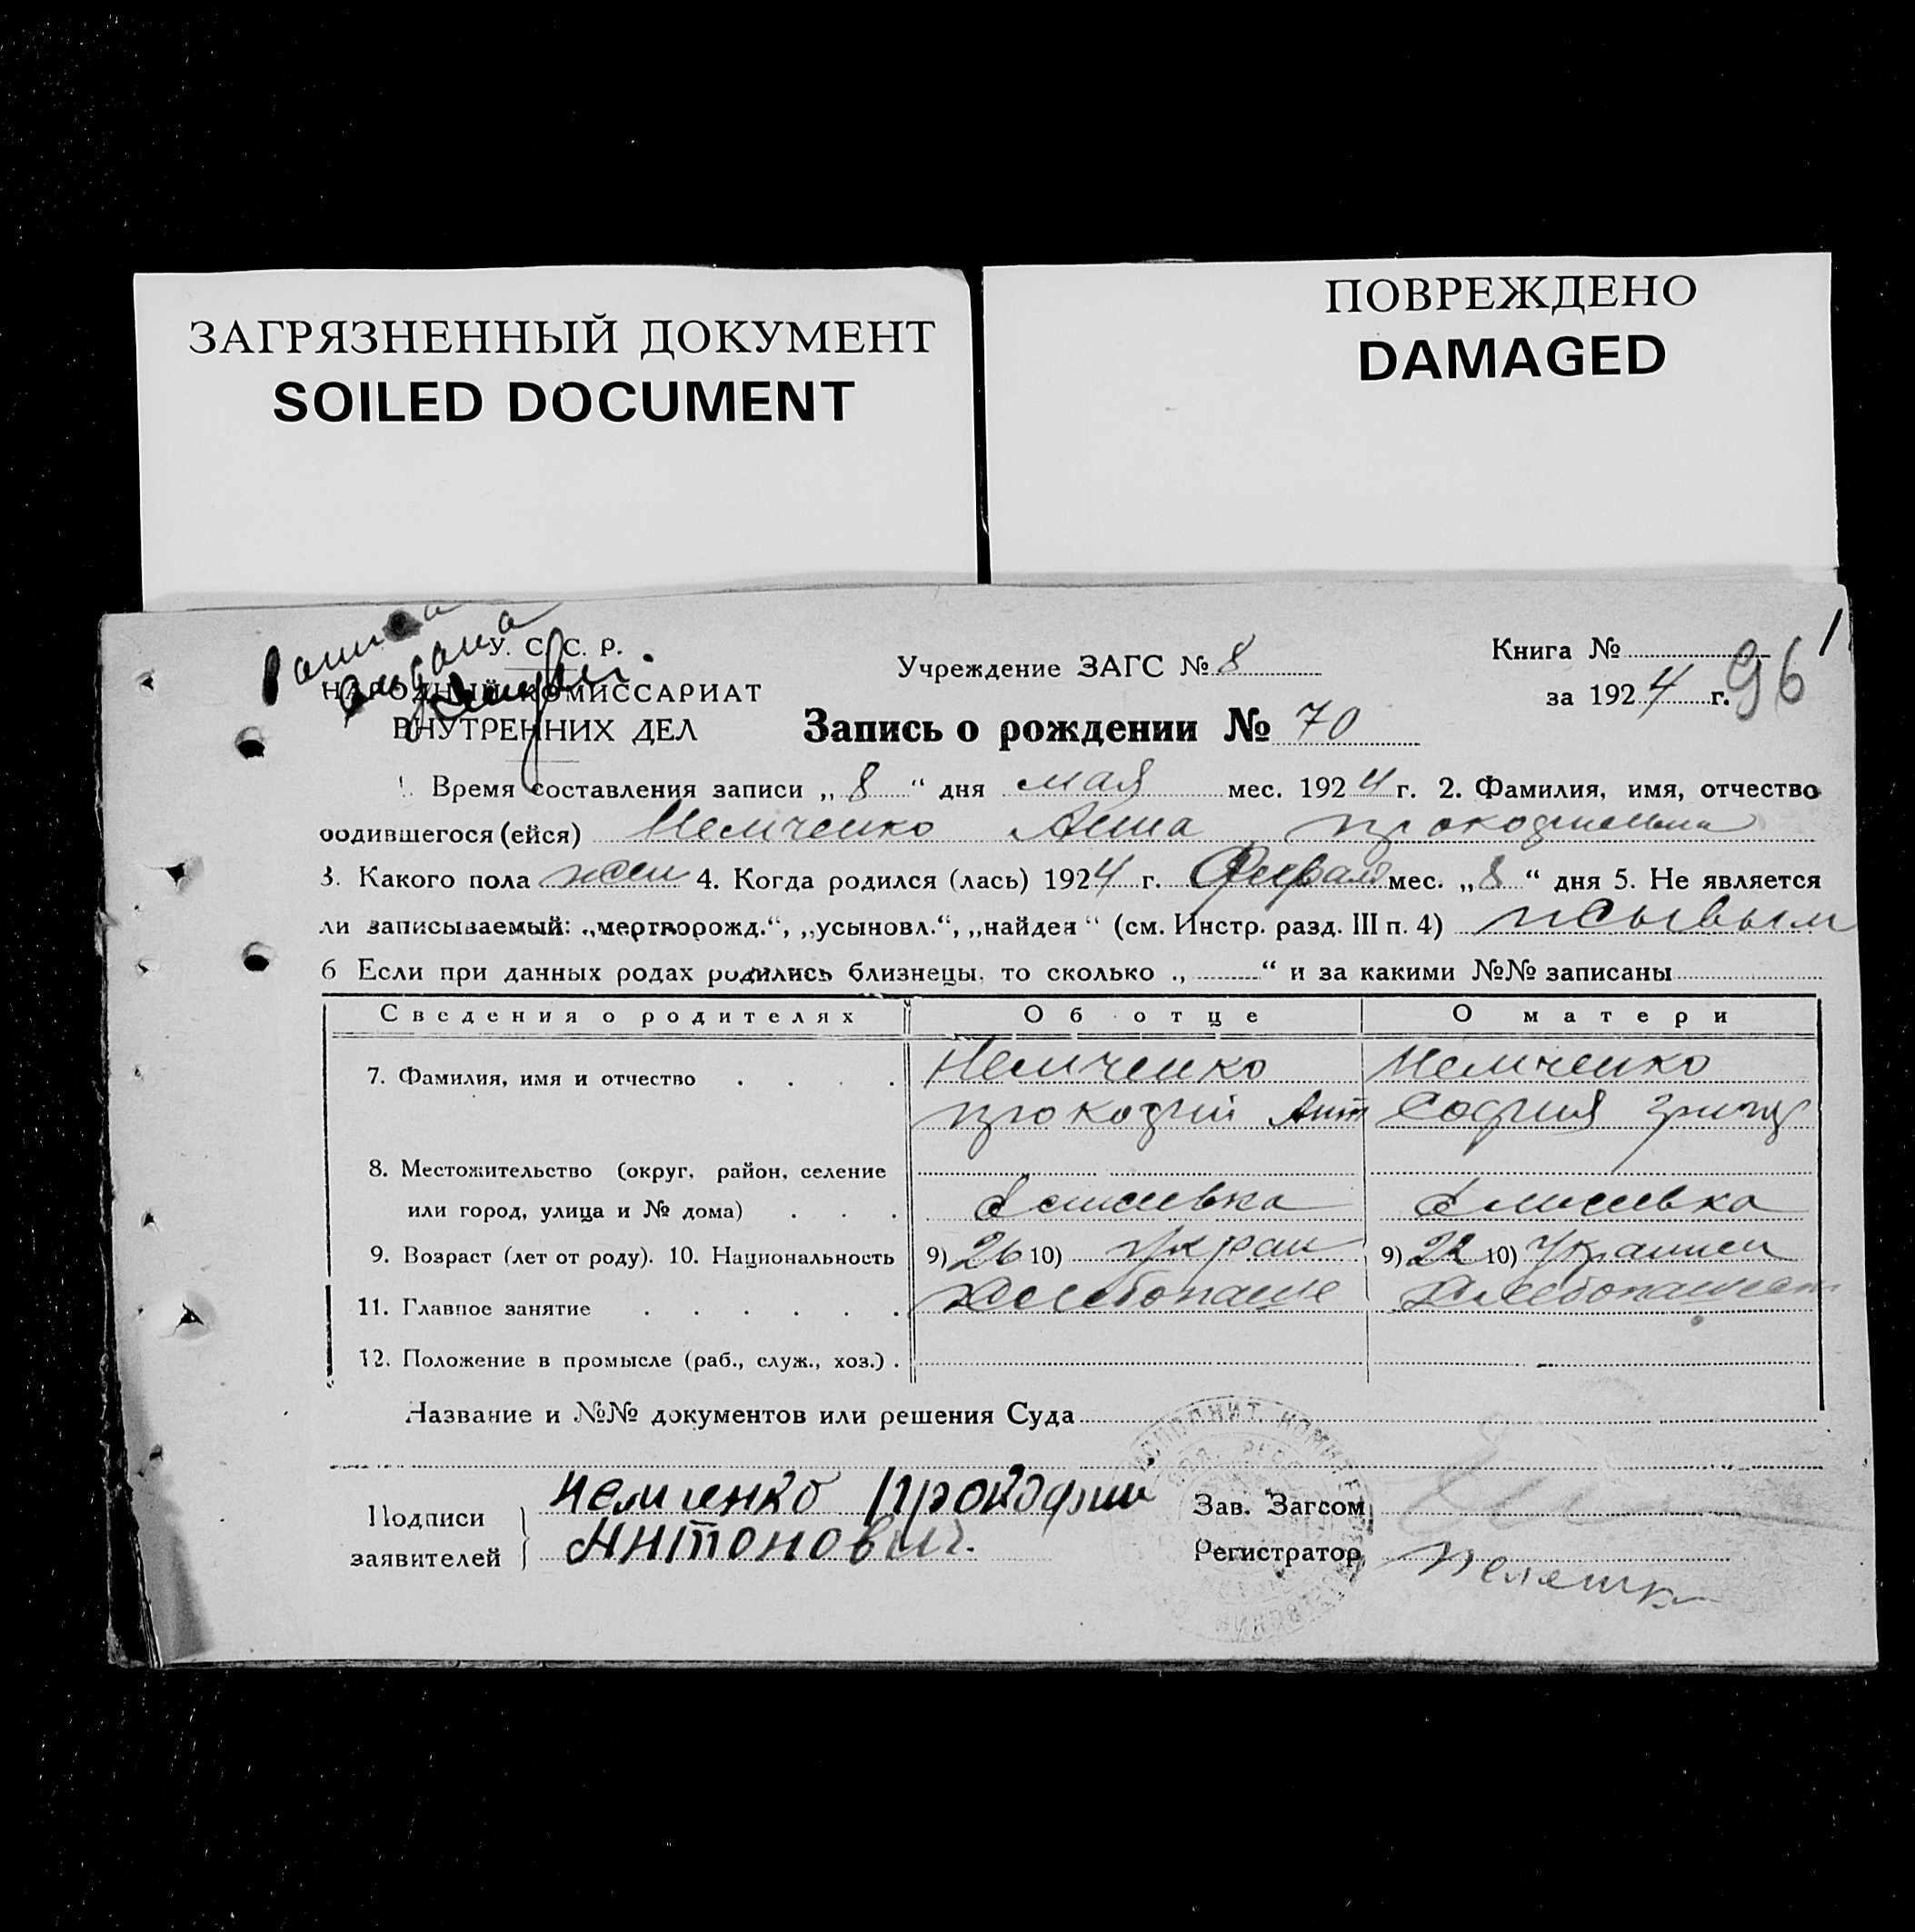 ЗАГРЯЗНЕННЫЙ ДОКУМЕНТ
SOILED DOCUMENT
ПОВРЕЖДЕНО
DAMAGED
У. С. С. Р.
НАРОДНЫЙ КОМИССАРИАТ
ВНУТРЕННИХ ДЕЛ
выдана
Учреждение ЗАГС № 8
Запись о рождении № 70
Книга №
за 1924 г. 96
1. Время составления записи „ 8 “ дня мая мес. 1924 г. 2. Фамилия, имя, отчество
родившегося (ейся) Немченко Анна
3. Какого пола жен 4. Когда родился (лась) 1924 г. Феврал мес. „ 8 “ дня 5. Не является
ли записываемый: „мертворожд.“, „усыновл.“, „найден“ (см. Инстр. разд. III п. 4) живым
6 Если при данных родах родились близнецы, то сколько „ “ и за какими №№ записаны
Сведения о родителях Об отце О матери
7. Фамилия, имя и отчество Немченко Немченко
Прокофий Ант София
8. Местожительство (округ, район, селение
или город, улица и № дома) Елисеевка Елисеевка
9. Возраст (лет от роду). 10. Национальность 9) 26 10) Украин 9) 22 10) Украинен
11. Главное занятие Хлебопаше Хлебопашест
12. Положение в промысле (раб., служ., хоз.)
Название и №№ документов или решения Суда
Подписи
заявителей
Немченко Прокофий
Антонович.
Зав. Загсом
Регистратор